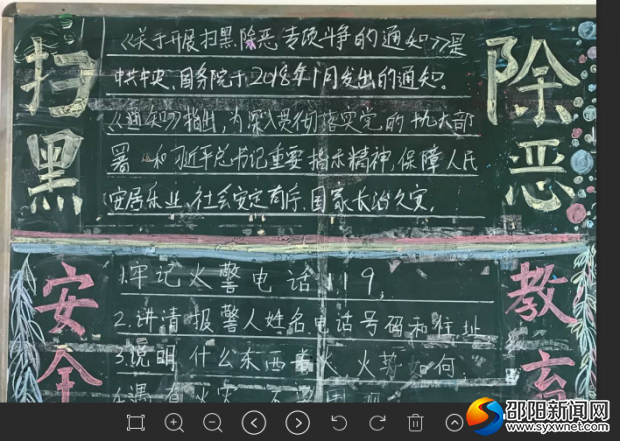 扫黑
除恶
《关于开展扫黑除恶专项斗争的通知》是
中共中央、国务院于2018年1月发出的通知。
《通知》指出，为深入贯彻落实党的十九大部
署和习近平总书记重要指示精神，保障人民
安居乐业，社会安定有序，国家长治久安，
安全
教育
1.牢记火警电话119，
2.讲清报警人姓名电话号码和住址
3.说明什么东西着火，火势如何，
邵阳新闻网
www.syxwnet.com